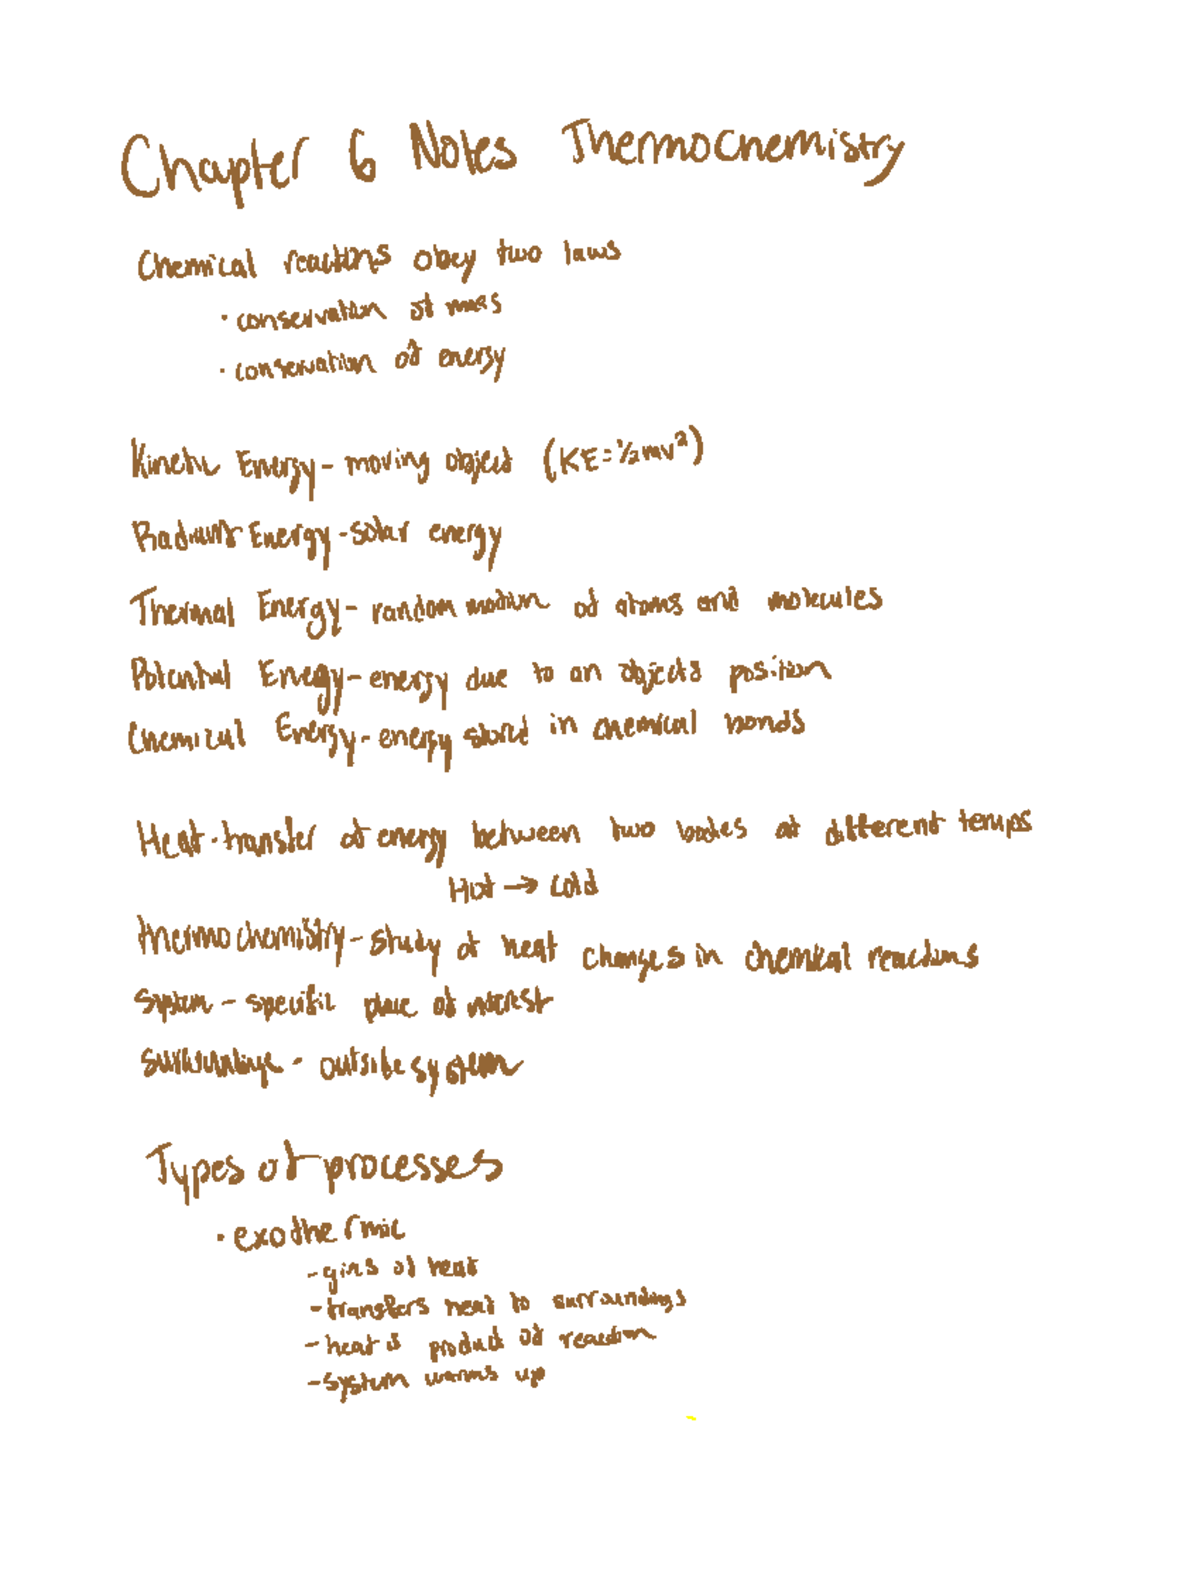 Chapter 6 Notes Thermochemistry
Chemical reactions obey two laws
• conservation of mass
• conservation of energy
Kinetic Energy - moving object (KE = ½mv²)
Radiant Energy - solar energy
Thermal Energy - random motion of atoms and molecules
Potential Energy - energy due to an objects position
Chemical Energy - energy stored in chemical bonds
Heat - transfer of energy between two bodies at different temps
Hot → cold
thermochemistry - study of heat changes in chemical reactions
System - specific place of interest
surroundings - outside system
Types of processes
• exothermic
- gives of heat
- transfers heat to surroundings
- heat is product of reaction
- system warms up